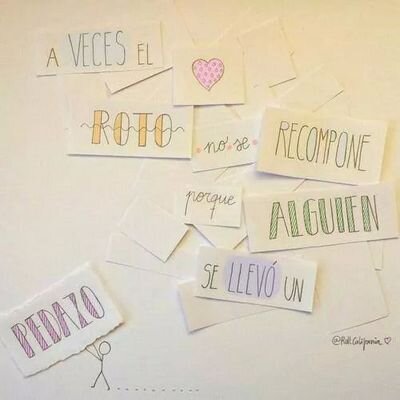 A VECES EL
ROTO no se RECOMPONE
porque ALGUIEN
SE LLEVÓ UN
PEDAZO